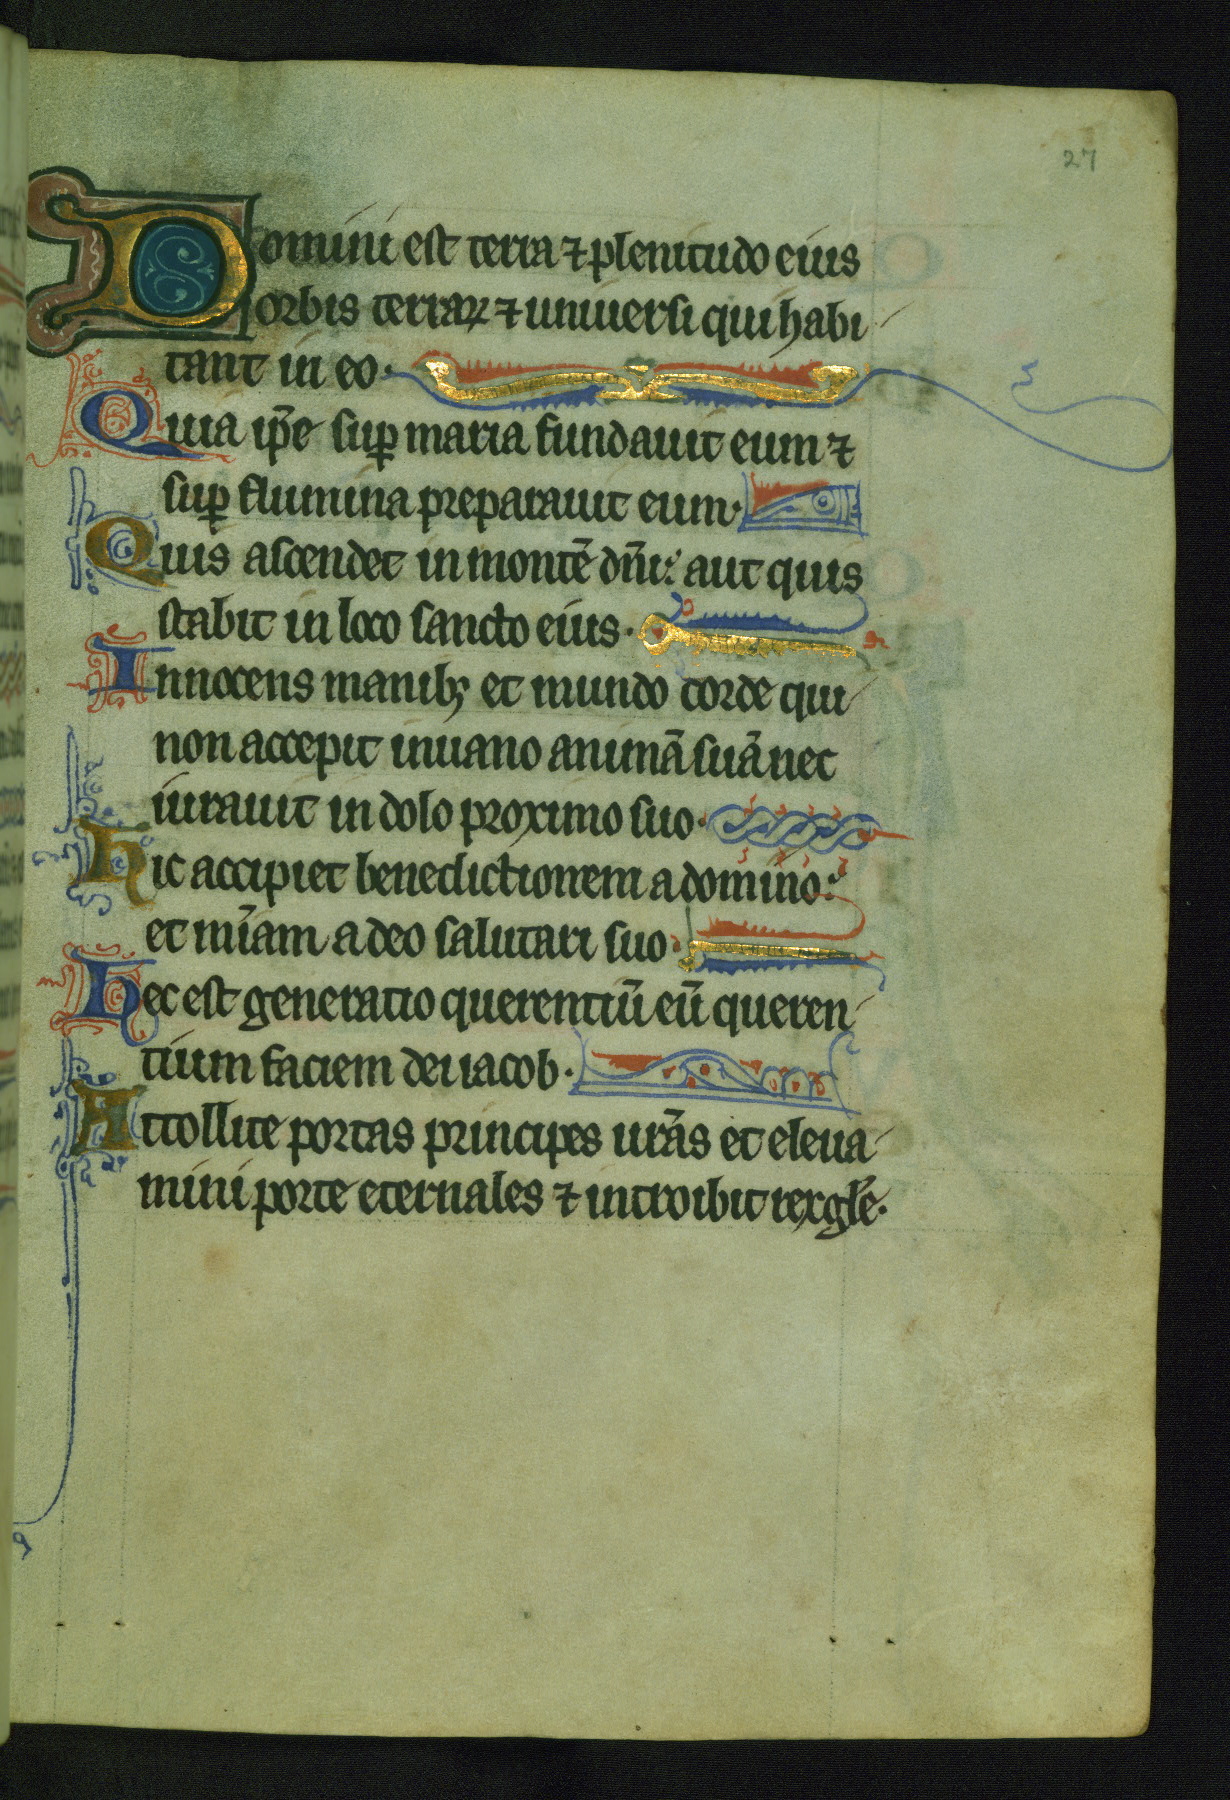 27
Domini est terra ⁊ plenitudo eius
orbis terraꝝ ⁊ uniuersi qui habi
tant in eo.
Quia ip̄e suꝑ maria fundauit eum ⁊
suꝑ flumina preparauit eum.
Quis ascendet in montē dn̄i: aut quis
stabit in loco sancto eius.
Innocens manibꝫ et mundo corde qui
non accepit in uano animā suā nec
iurauit in dolo proximo suo.
Hic accipiet benedictionem a domino:
et mīam a deo salutari suo.
Hec est generatio querentiū eū queren
tium faciem dei iacob.
Attollite portas principes ur̄as et eleua
mini porte eternales ⁊ introibit rex gl̄e.